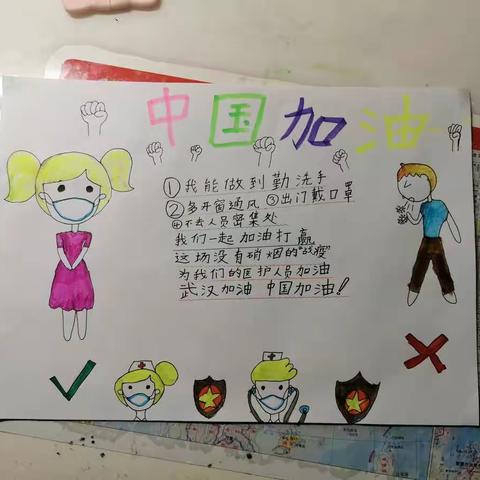 中国加油
①我能做到勤洗手
②多开窗通风 ③出门戴口罩
④不去人员密集处
我们一起 加油打赢
这场没有硝烟的"战疫"
为我们的医护人员加油
武汉加油 中国加油！